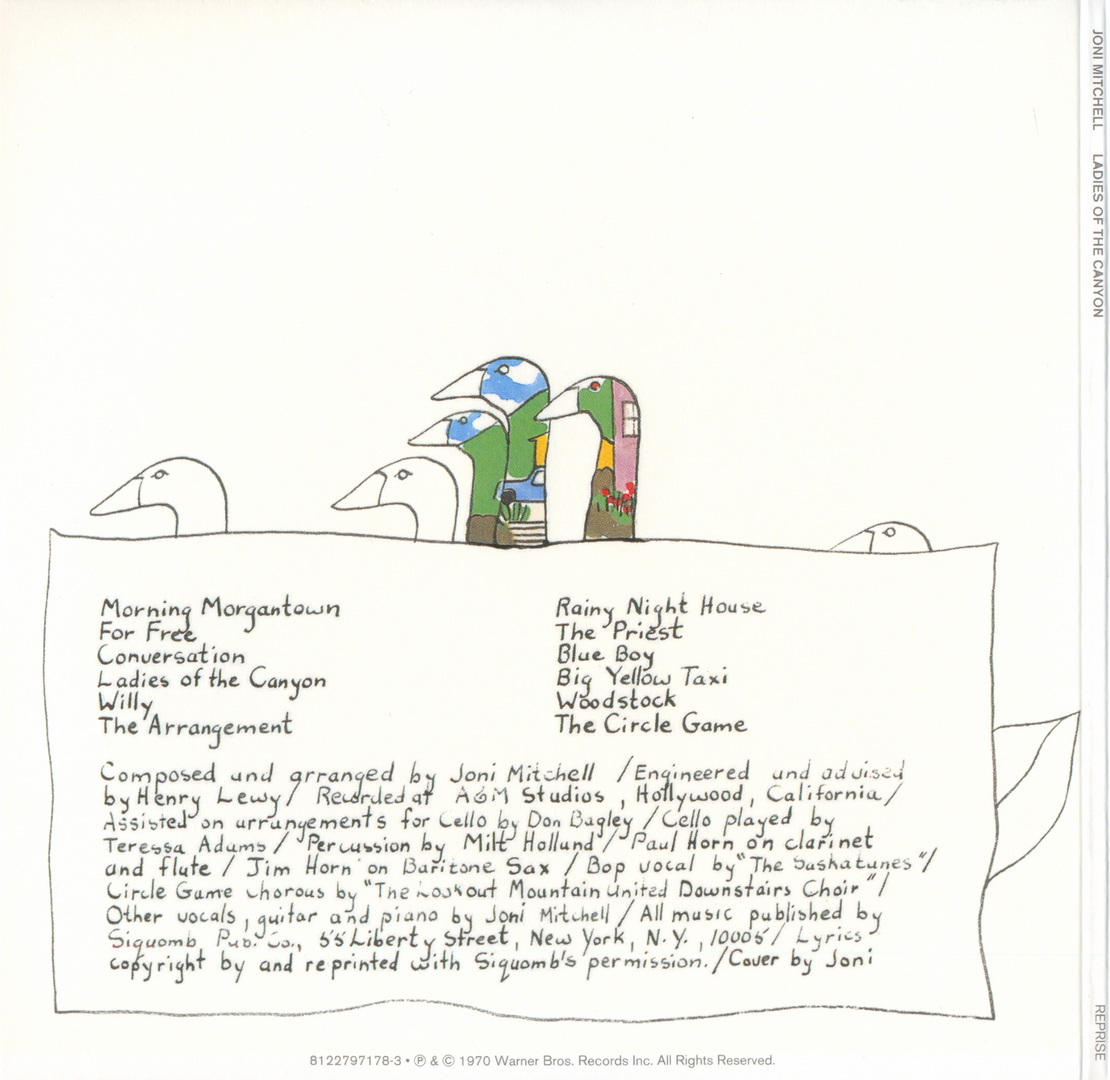 Morning Morgantown
For Free
Conversation
Ladies of the Canyon
Willy
The Arrangement
Rainy Night House
The Priest
Blue Boy
Big Yellow Taxi
Woodstock
The Circle Game
Composed and arranged by Joni Mitchell / Engineered and advised
by Henry Lewy / Recorded at A&M Studios, Hollywood, California /
Assisted on arrangements for Cello by Don Bagley / Cello played by
Teressa Adams / Percussion by Milt Holland / Paul Horn on clarinet
and flute / Jim Horn on Baritone Sax / Bop vocal by "The Saskatunes" /
Circle Game Chorous by "The Lookout Mountain United Downstairs Choir" /
Other vocals, guitar and piano by Joni Mitchell / All music published by
Siquomb Pub. Co., 55 Liberty Street, New York, N.Y., 10005 / Lyrics
copyright by and reprinted with Siquomb's permission. / Cover by Joni
8122797178-3 • ℗ & © 1970 Warner Bros. Records Inc. All Rights Reserved.
JONI MITCHELL LADIES OF THE CANYON
REPRISE